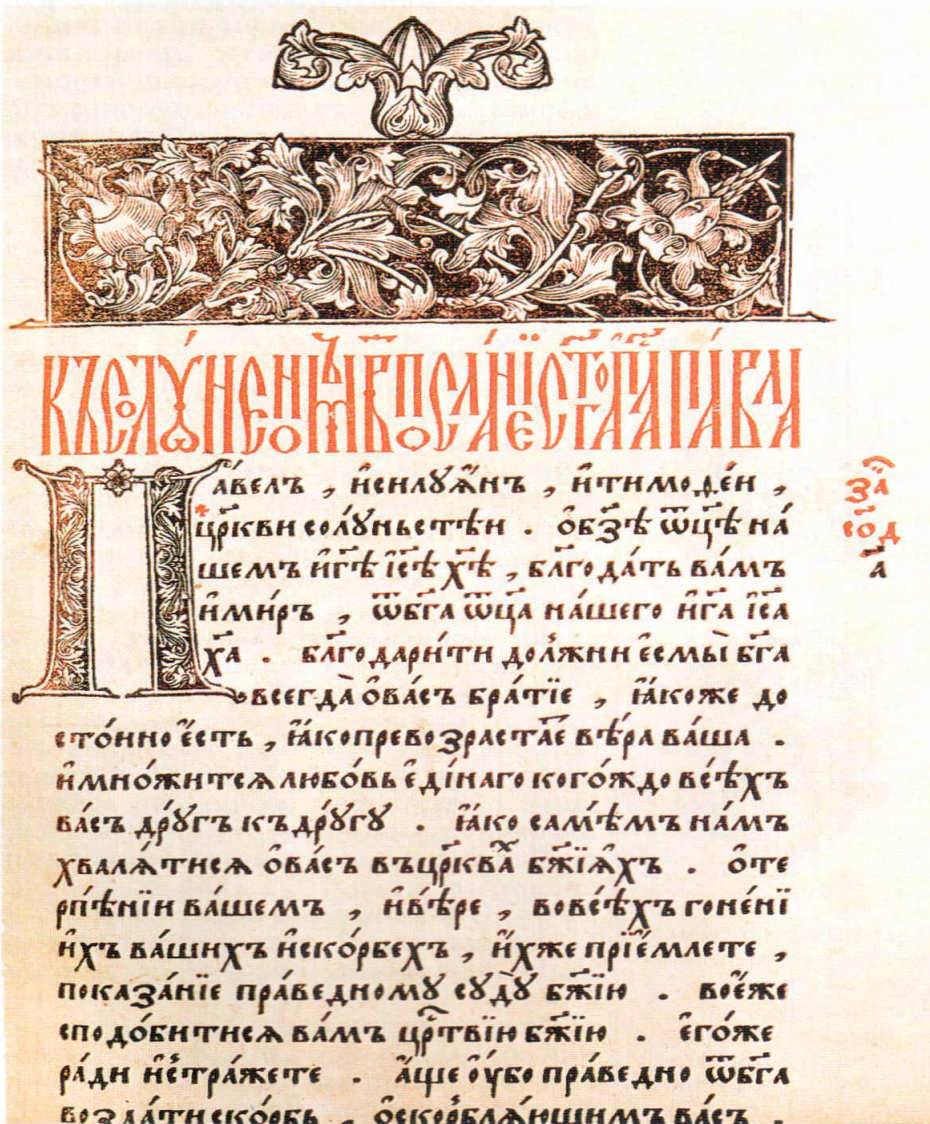 къ солꙋнеѡномъ в҃ посланїе ст҃го ап҃ла павла
Па́велъ , и҆силꙋа҆́нъ , и҆тимоѳе́и ,
цр҃кви солꙋ́ньстѣи . ѻ҆бз҃ѣ ѿц҃ѣ на́
шемъ и҆г҃ѣ і҆с҃ѣ х҃ѣ , бл҃года́ть ва́мъ
и҆ми́ръ , ѿбг҃а ѿц҃а на́шего и҆г҃а і҆с҃а
х҃а . бл҃годари́ти до́лжни є҆смы̀ бг҃а
всегда̀ ѻ҆ва́съ бра́тїе , ꙗ҆́коже до
сто́йно є҆́сть , ꙗ҆́ко превозраста́е вѣ́ра ва́ша .
и҆мно́житсѧ любо́вь є҆ди́наго кого́ждо всѣ́хъ
ва́съ дрꙋ́гъ къдрꙋ́гꙋ . ꙗ҆́ко самѣ́мъ на́мъ
хвалѧ́тисѧ ѻ҆ва́съ въцр҃ква́х бж҃їѧхъ . ѻ҆те
рпѣ́нїи ва́шемъ , и҆вѣ́ре , вовсѣ́хъ гоне́нї
и҆хъ ва́шихъ и҆ско́рбехъ , и҆́хже прїе́млете ,
показа́нїе пра́ведномꙋ сꙋдꙋ̀ бж҃їю . воє҆́же
сподо́битисѧ ва́мъ цр҃твїю бж҃їю . є҆го́же
ра́ди и҆стра́жете . а҆́ще ᲂу҆́бо пра́ведно ѿбг҃а
возда́ти ско́рбь , ѻ҆скорблѧ́ющимъ ва́съ .
за
сод
а҃